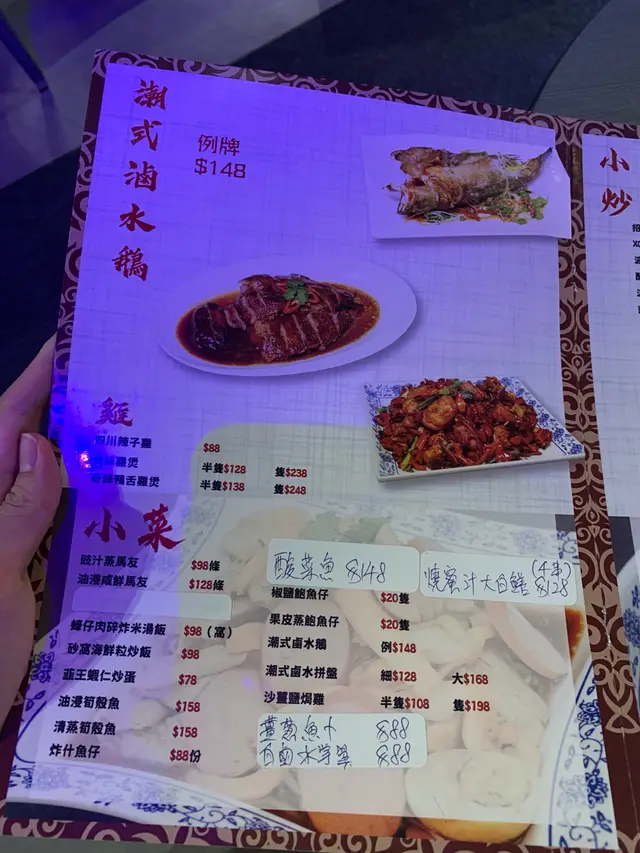 潮式滷水鵝
例牌
$148
雞
四川辣子雞 $88
雞煲 半隻$128 隻$238
鴨舌雞煲 半隻$138 隻$248
小菜
豉汁蒸馬友 $98條
油浸咸鮮馬友 $128條
蠔仔肉碎炸米湯飯 $98（窩）
砂窩海鮮粒炒飯 $98
韮王蝦仁炒蛋 $78
油浸筍殼魚 $158
清蒸筍殼魚 $158
炸什魚仔 $88份
酸菜魚 $148
椒鹽鮑魚仔 $20隻
果皮蒸鮑魚仔 $20隻
潮式鹵水鵝 例$148
潮式鹵水拼盤 細$128 大$168
沙薑鹽焗雞 半隻$108 隻$198
薑葱魚卜 $88
鹵水 $88
燒蜜汁大白鱔 $128
小炒